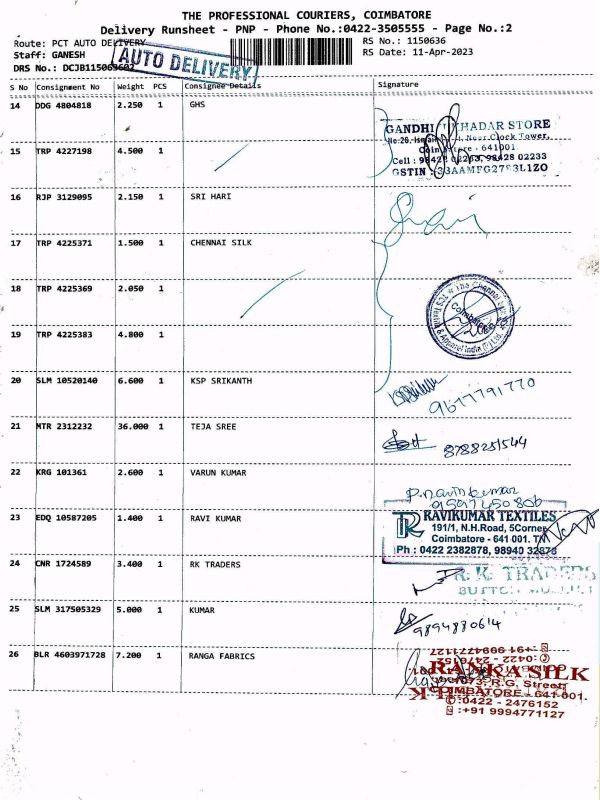 THE PROFESSIONAL COURIERS, COIMBATORE
Delivery Runsheet - PNP - Phone No.:0422-3505555 - Page No.:2
Route: PCT AUTO DELIVERY
RS No.: 1150636
Staff: GANESH
RS Date: 11-Apr-2023
AUTO DELIVERY
DRS No.: DCJB115063602
S No Consignment No Weight PCS Consignee Details Signature
14 DDG 4804818 2.250 1 GHS
GANDHI KHADAR STORE
Near Clock Tower,
Coimbatore - 641001
15 TRP 4227198 4.500 1
Cell : 98428 02233, 98428 02233
GSTIN : 33AAMFG2783L1ZO
16 RJP 3129095 2.150 1 SRI HARI
17 TRP 4225371 1.500 1 CHENNAI SILK
18 TRP 4225369 2.050 1
19 TRP 4225383 4.800 1
20 SLM 10520140 6.600 1 KSP SRIKANTH
9677791770
21 MTR 2312232 36.000 1 TEJA SREE
8788251544
22 KRG 101361 2.600 1 VARUN KUMAR
P. navin kumar
9597450806
23 EDQ 10587205 1.400 1 RAVI KUMAR
RAVIKUMAR TEXTILES
191/1, N.H.Road, 5Corner
Coimbatore - 641 001. TN
Ph : 0422 2382878, 98940 32878
24 CNR 1724589 3.400 1 RK TRADERS
R.K. TRADERS
25 SLM 317505329 5.000 1 KUMAR
9894880614
26 BLR 4603971728 7.200 1 RANGA FABRICS
RANKA SILK
R.G. Street,
COIMBATORE - 641 001.
:0422 - 2476152
:+91 9994771127